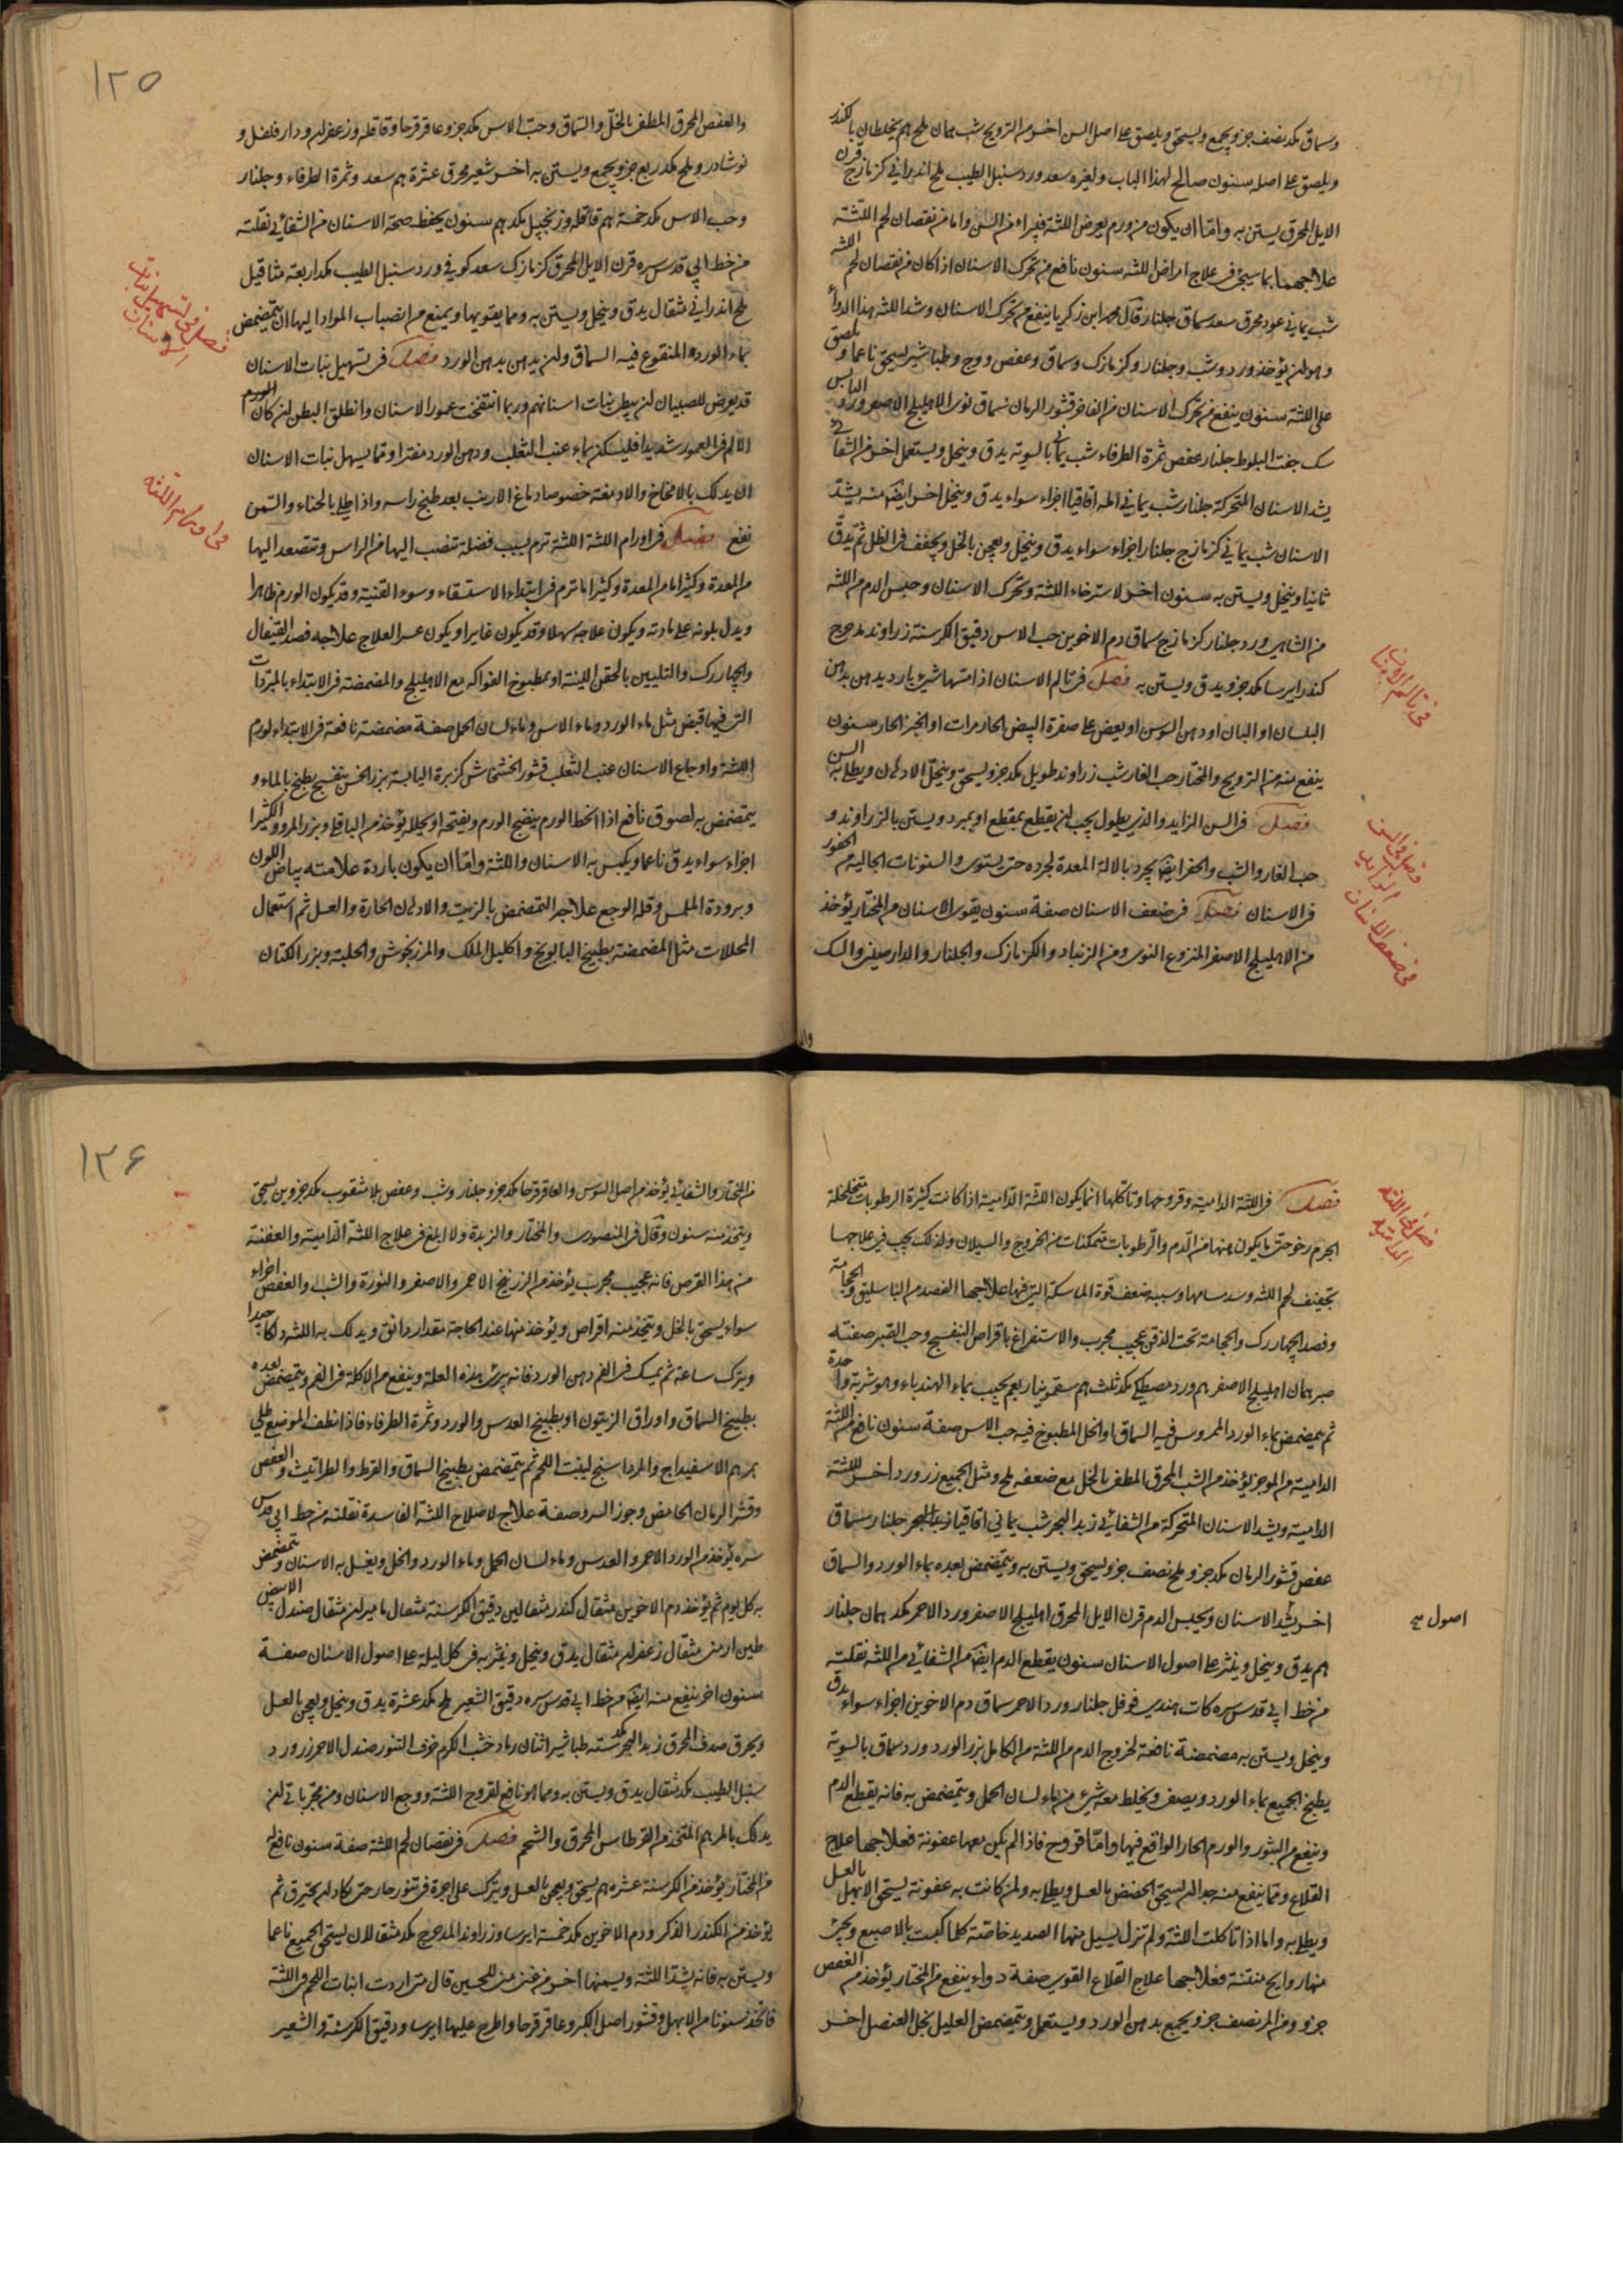 وسماق مكد نصف جزو يجمع ويسحق ويلصق على اصل السن اخر من الترويح شب يمان ملح هم يخلطان بالكندر
ويلصق على اصله سنون صالح لهذا الباب ولغيره سعد ورد سنبل الطيب ملح اندراني كزمازج قرن
الايل المحرق يستن به واما ان يكون من ورم يعرض اللثة فيبراء من السن واما من نقصان لحم اللثة
علاجهما بما سيجئ في علاج امراض اللثه سنون نافع من تحرك الاسنان اذا كان من نقصان لحم اللثه
شب يماني عود محرق سعد سماق جلنار قال محمد ابن زكريا ينفع من تحرك الاسنان وشد اللثه هذا الدواء
وهو ان يؤخذ ورد وشب وجلنار وكزمازك وسماق وعفص ووج وطباشير يسحق ناعما ويلصق
على اللثة سنون ينفع من تحرك الاسنان من الفاخر قشور الرمان سماق نوى الاهليلج الاصفر ورد اليابس
سك جفت البلوط جلنار عفص ثمرة الطرفاء شب يماني بالسوية يدق وينخل ويستعمل اخر من الشفائي
يشد الاسنان المتحركة جلنار شب يماني اقاقيا اجزاء سواء يدق وينخل اخر ايضا منه يشد
الاسنان شب يماني كزمازج جلنار اجزاء سواء يدق وينخل ويعجن بالخل ويجفف في الظل ثم يدق
ثانيا وينخل ويستن به سنون اخر لاسترخاء اللثة وتحرك الاسنان وحبس الدم من اللثه
من الشاهي ورد جلنار كزمازج سماق دم الاخوين حب الاس دقيق الكرسنة زراوند مدحرج
كندر ايرسا مكد جزو يدق ويستن به فصل في تالم الاسنان اذا مسها شئ بارد يدهن بدهن
البلسان او البان او دهن السوسن او يعض على صفرة البيض الحار مرات او الخبز الحار سنون
ينفع منه من الترويح والمختار حب الغار شب زراوند طويل مكد جزو يسحق وينخل الادهان ويطلى به السن
فصل في السن الزايد والذي يطول يجب ان يقطع بمقطع او يبرد ويستن بالزراوند و
حب الغار والشب والحفر ايضا يجرد بالالة المعدة لجرده حتى يستوى والسنونات الجالية من الحفور
في الاسنان فصل في ضعف الاسنان صفة سنون يقوى الاسنان من المختار يؤخذ
من الاهليلج الاصفر المنزوع النوى ومن الزنباد والكزمازك والجلنار والدارصيني والسك
في تالم الاسنان
فصل في السن الزايد
في ضعف الاسنان
١٢٥
والعفص المحرق المطفى بالخل والسماق وحب الاس مكد جزو عاقرقرحا وقاقله وزعفران ودارفلفل و
نوشادر وملح مكد ربع جزو يجمع ويستن به اخر شعير محرق عشرة هم سعد وثمرة الطرفاء وجلنار
وحب الاس مكد خمسة هم قاقله وزنجبيل مكد هم سنون يحفظ صحة الاسنان من الشفائي نقلته
من خط ابي قدس سره قرن الايل المحرق كزمازك سعد كوفي ورد سنبل الطيب مكد اربعة مثاقيل
ملح اندراني مثقال يدق وينخل ويستن به ومما يقويها ويمنع من انصباب المواد اليها ان يتمضمض
بماء الورد المنقوع فيه السماق وان يدهن بدهن الورد فصل في تسهيل نبات الاسنان
قد يعرض للصبيان ان يبطئ نبات اسنانهم وربما انتفخت عمور الاسنان وانطلق البطن ان كان الورم
الالم في العمور شديدا فليسكن بماء عنب الثعلب ودهن الورد مفترا ومما يسهل نبات الاسنان
ان يدلك بالامخاخ والادمغة خصوصا دماغ الارنب بعد طبخ راسه واذا طلي بالحناء والسمن
نفع فصل في اورام اللثة اللثة ترم بسبب فضلة تنصب اليها من الراس وتتصعد اليها
من المعدة وكثيرا ما من المعدة وكثيرا ما ترم في ابتداء الاستسقاء وسوء القنية وقد يكون الورم ظاهرا
ويدل بلونه على مادته ويكون علاجه سهلا وقد يكون غايرا ويكون عسر العلاج علاجه فصد القيفال
والجهاررك والتليين بالحقن اللينة او بمطبوخ الفواكه مع الاهليلج والمضمضة في الابتداء بالمبردات
التي فيها قبض مثل ماء الورد وماء الاس وماء لسان الحمل صفة مضمضة نافعة في الابتداء لورم
اللثة واوجاع الاسنان عنب الثعلب قشور الخشخاش كزبرة اليابسة بزر الخس بنفسج يطبخ بالماء و
يتمضمض به لصوق نافع اذا انحط الورم ينضج الورم ويفتحه او يحلله يؤخذ من الباقلى وبزر المرو والكثيرا
اجزاء سواء يدق ناعما ويكبس به الاسنان واللثة واما ان يكون باردة علامته بياض اللون
وبرودة الملمس وقلة الوجع علاجه التمضمض بالزيت والادهان الحارة والعسل ثم استعمال
المحللات مثل المضمضة بطبيخ البابونج واكليل الملك والمرزنجوش والحلبة وبزر الكتان
فصل في تسهيل نبات الاسنان
في اورام اللثه
فصل في اللثة الدامية وقروحها وتاكلها انما يكون اللثة الدامية اذا كانت كثيرة الرطوبات متخلخلة
الجرم رخو حتى ما يكون فيها من الدم والرطوبات متمكنات من الخروج والسيلان ولذلك يجب في علاجها
تجفيف لحم اللثه وسد مسامها وسببه ضعف قوة الماسكة التي فيها علاجها الفصد من الباسليق والحجامة
وفصد الجهاررك والحجامة تحت الذقن عجيب مجرب والاستفراغ باقراص البنفسج وحب الصبر صفته
صبر همان اهليلج الاصفر هم ورد مصطكى مكد ثلث هم سقمونيا ربع هم يحبب بماء الهندباء وهو شربة واحدة
ثم يمضمض بماء الورد الممروس فيه السماق او الخل المطبوخ فيه حب الاس صفة سنون نافع من اللثة
الدامية من الموجز يؤخذ من الشب المحرق المطفى بالخل مع ضعفه ملح ومثل الجميع زرورد اخر للثة
الدامية ويشد الاسنان المتحركة من الشفائي زبد البحر شب يماني اقاقيا جلنار سماق
عفص قشور الرمان مكد جزو ملح نصف جزو يسحق ويستن به ويتمضمض بعده بماء الورد والسماق
اخر يشد الاسنان ويحبس الدم قرن الايل المحرق اهليلج الاصفر ورد الاحمر مكد همان جلنار
هم يدق وينخل وينثر على اصول الاسنان سنون يقطع الدم ايضا من الشفائي من اللثة نقلته
من خط ابي قدس سره كات هندي فوفل جلنار ورد الاحمر سماق دم الاخوين اجزاء سواء يدق
وينخل ويستن به مضمضة نافعة لخروج الدم من اللثة من الكامل بزر الورد ورد سماق بالسوية
يطبخ الجميع بماء الورد ويصفى ويخلط معه شئ من ماء لسان الحمل ويتمضمض به فانه يقطع الدم
وينفع من البثور والورم الحار الواقع فيها واما قروح فاذا لم يكن معها عفونة فعلاجها علاج
القلاع ومما ينفع منه جدا ان يسحق الحضض بالعسل ويطلى به وان كانت به عفونة يسحق الابهل بالعسل
ويطلى به واما اذا تاكلت اللثة ولم تزل يسيل منها الصديد خاصة كلما كبست بالاصبع ويجئ
منها روايح منتنة فعلاجها علاج القلاع القوى صفة دواء ينفع من المختار يؤخذ من العفص
جزو ومن المر نصف جزو يجمع بدهن الورد ويستعمل ويتمضمض العليل بخل العنصل اخر
فصل في اللثه الداميه
اصول
١٢۶
من المختار والشفائي يؤخذ من اصل السوس والعاقرقرحا مكد جزو جلنار وشب وعفص بلا مثقوب مكد جزوين يسحق
ويتخذ منه سنون وقال في المنصورى والمختار والزبدة ولا ابلغ في علاج اللثة الدامية والعفنة
من هذا القرص فانه عجيب مجرب يؤخذ من الزرنيخ الاحمر والاصفر والنورة والشب والعفص اجزاء
سواء يسحق بالخل ويتخذ منه اقراص ويؤخذ منها عند الحاجة مقدار دانق ويدلك به اللثة دلكا جيدا
ويترك ساعة ثم يمسك في الفم دهن الورد فانه يبرئ هذه العلة وينفع من الاكلة في الفم ويتمضمض بعده
بطبيخ السماق واوراق الزيتون او بطبيخ العدس والورد وثمرة الطرفاء فاذا نظف الموضع طلي
بمرهم الاسفيداج والمرداسنج لينبت اللحم ثم يتمضمض بطبيخ السماق والقرط والطراثيث والعفص
وقشر الرمان الحامض وجوز السرو صفة علاج لاصلاح اللثة الفاسدة نقلته من خط ابي قدس
سره يؤخذ من الورد الاحمر والعدس وماء لسان الحمل وماء الورد والخل ويغسل به الاسنان ويتمضمض
به كل يوم ثم يؤخذ دم الاخوين مثقال كندر مثقالين دقيق الكرسنة مثقال ماميران مثقال صندل الابيض
طين ارمنى مثقال زعفران مثقال يدق وينخل وينثر به في كل ليلة على اصول الاسنان صفة
سنون اخر ينفع منه ايضا من خط ابي قدس سره دقيق الشعير ملح مكد عشرة يدق وينخل ويعجن بالعسل
ويحرق صدف المحرق زبد البحر مكد ستة طباشير اثنان رماد خشب الكرم خزف التنور صندل الاحمر زرورد
سنبل الطيب مكد مثقال يدق ويستن به ومما هو نافع لقروح اللثة ووجع الاسنان ومن مجرباتي ان
يدلك بالمرهم المتخذ من القرطاس المحرق والشحم فصل في نقصان لحم اللثة صفة سنون نافع له
من المختار يؤخذ من الكرسنة عشرة هم يسحق ويعجن بالعسل ويترك على اجرة في تنور حار حتى كاد ان يحترق ثم
يؤخذ من الكندر الذكر ودم الاخوين مكد خمسة ايرسا وزراوند المدحرج مكد مثقالان يسحق الجميع ناعما
ويستن به فانه يشد اللثة ويسمنها اخر من غنى منى للحسين قال متى اردت انبات اللحم في اللثة
فاتخذ سنونا من الابهل وقشور اصل الكبر وعاقرقرحا واطرح عليها ايرسا ودقيق الكرسنة والشعير